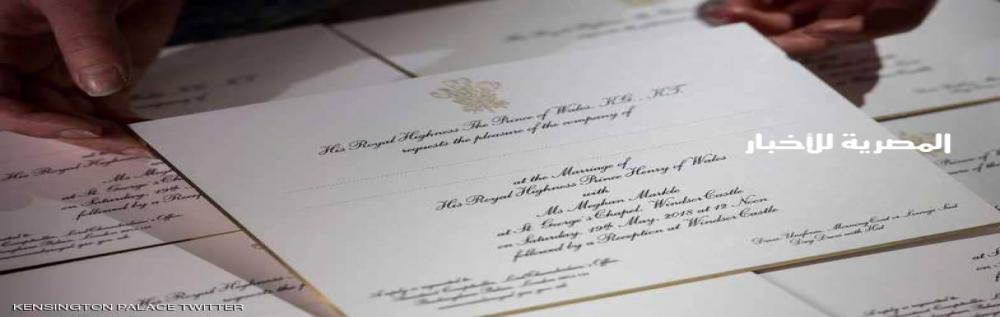 His Royal Highness The Prince of Wales, K.G., K.T.
requests the pleasure of the company of
at the Marriage of
His Royal Highness Prince Henry of Wales
with
Ms. Meghan Markle
at St. George's Chapel, Windsor Castle
on Saturday, 19th May, 2018 at 12 Noon
followed by a Reception at Windsor Castle
Dress: Uniform, Morning Coat or Lounge Suit
Day Dress with Hat
A reply is requested to
Lord Chamberlain's Office
Buckingham Palace, London
المصرية للأخبار
KENSINGTON PALACE TWITTER